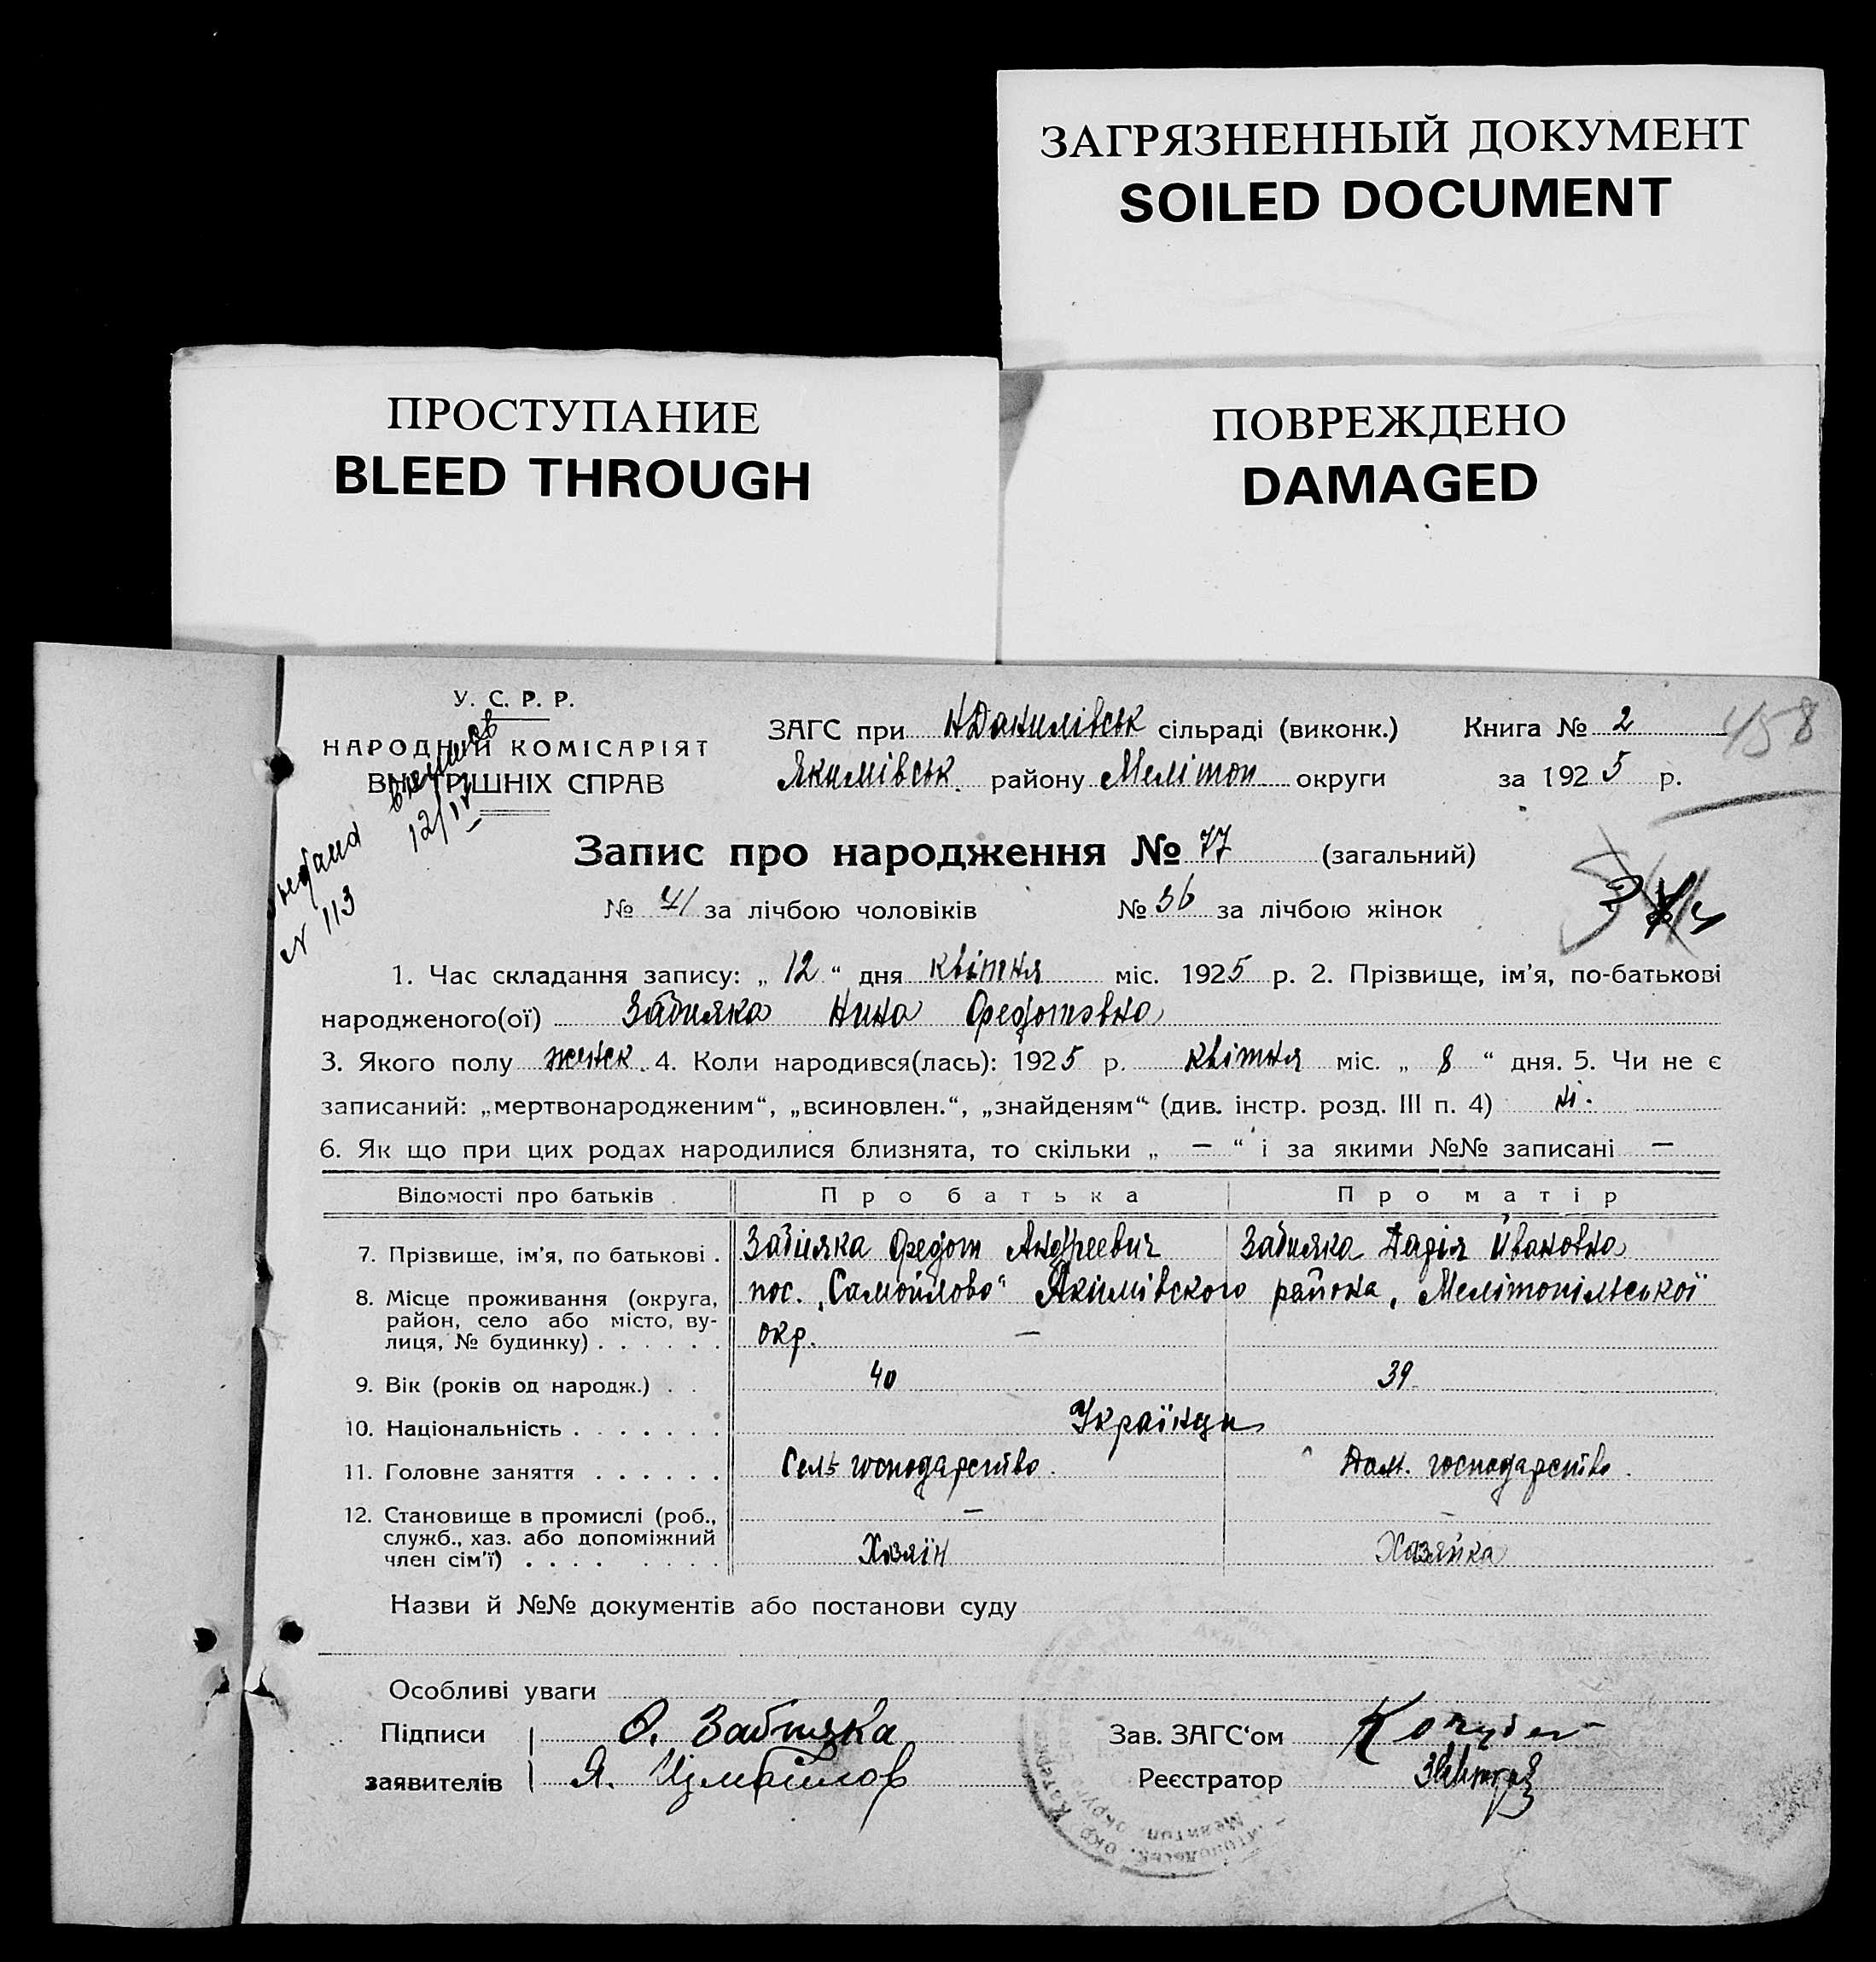 ЗАГРЯЗНЕННЫЙ ДОКУМЕНТ
SOILED DOCUMENT
ПРОСТУПАНИЕ
BLEED THROUGH
ПОВРЕЖДЕНО
DAMAGED
У. С. Р. Р.
НАРОДНІЙ КОМІСАРІЯТ
ВНУТРІШНІХ СПРАВ
12/IV
N 113
ЗАГС при НДанилівськ сільраді (виконк.) Книга № 2
458
Якимівськ. району Мелітоп округи за 1925 р.
Запис про народження № 77 (загальний)
№ 41 за лічбою чоловіків № 36 за лічбою жінок
1. Час складання запису: „ 12 “ дня квітня міс. 1925 р. 2. Прізвище, ім'я, по-батькові
народженого(ої) Забияка Нина Федотовна
3. Якого полу женск. 4. Коли народився(лась): 1925 р. квітня міс. „ 8 “ дня. 5. Чи не є
записаний: „мертвонародженим“, „всиновлен.“, „знайденям“ (див. інстр. розд. III п. 4) ні.
6. Як що при цих родах народилися близнята, то скільки „ — “ і за якими №№ записані —
Відомості про батьків Про батька Про матір
7. Прізвище, ім'я, по батькові . Забіяка Федот Андреевич Забияка Дарія Ивановна
8. Місце проживання (округа, район, село або місто, вулиця, № будинку) . . . . . .
пос. „Самойлово“ Якимівского района, Мелітопільської
окр. —
9. Вік (років од народж.) . . 40 39
10. Національність . . . . . . . Українци
11. Головне заняття . . . . . . Сель господарство. Дом. господарство.
12. Становище в промислі (роб., — —
служб., хаз. або допоміжний
член сім'ї) . . . . . . . . Хазяїн Хазяйка
Назви й №№ документів або постанови суду
Особливі уваги
Підписи Ф. Забияка Зав. ЗАГС'ом
заявителів Я. Измаілов Реєстратор